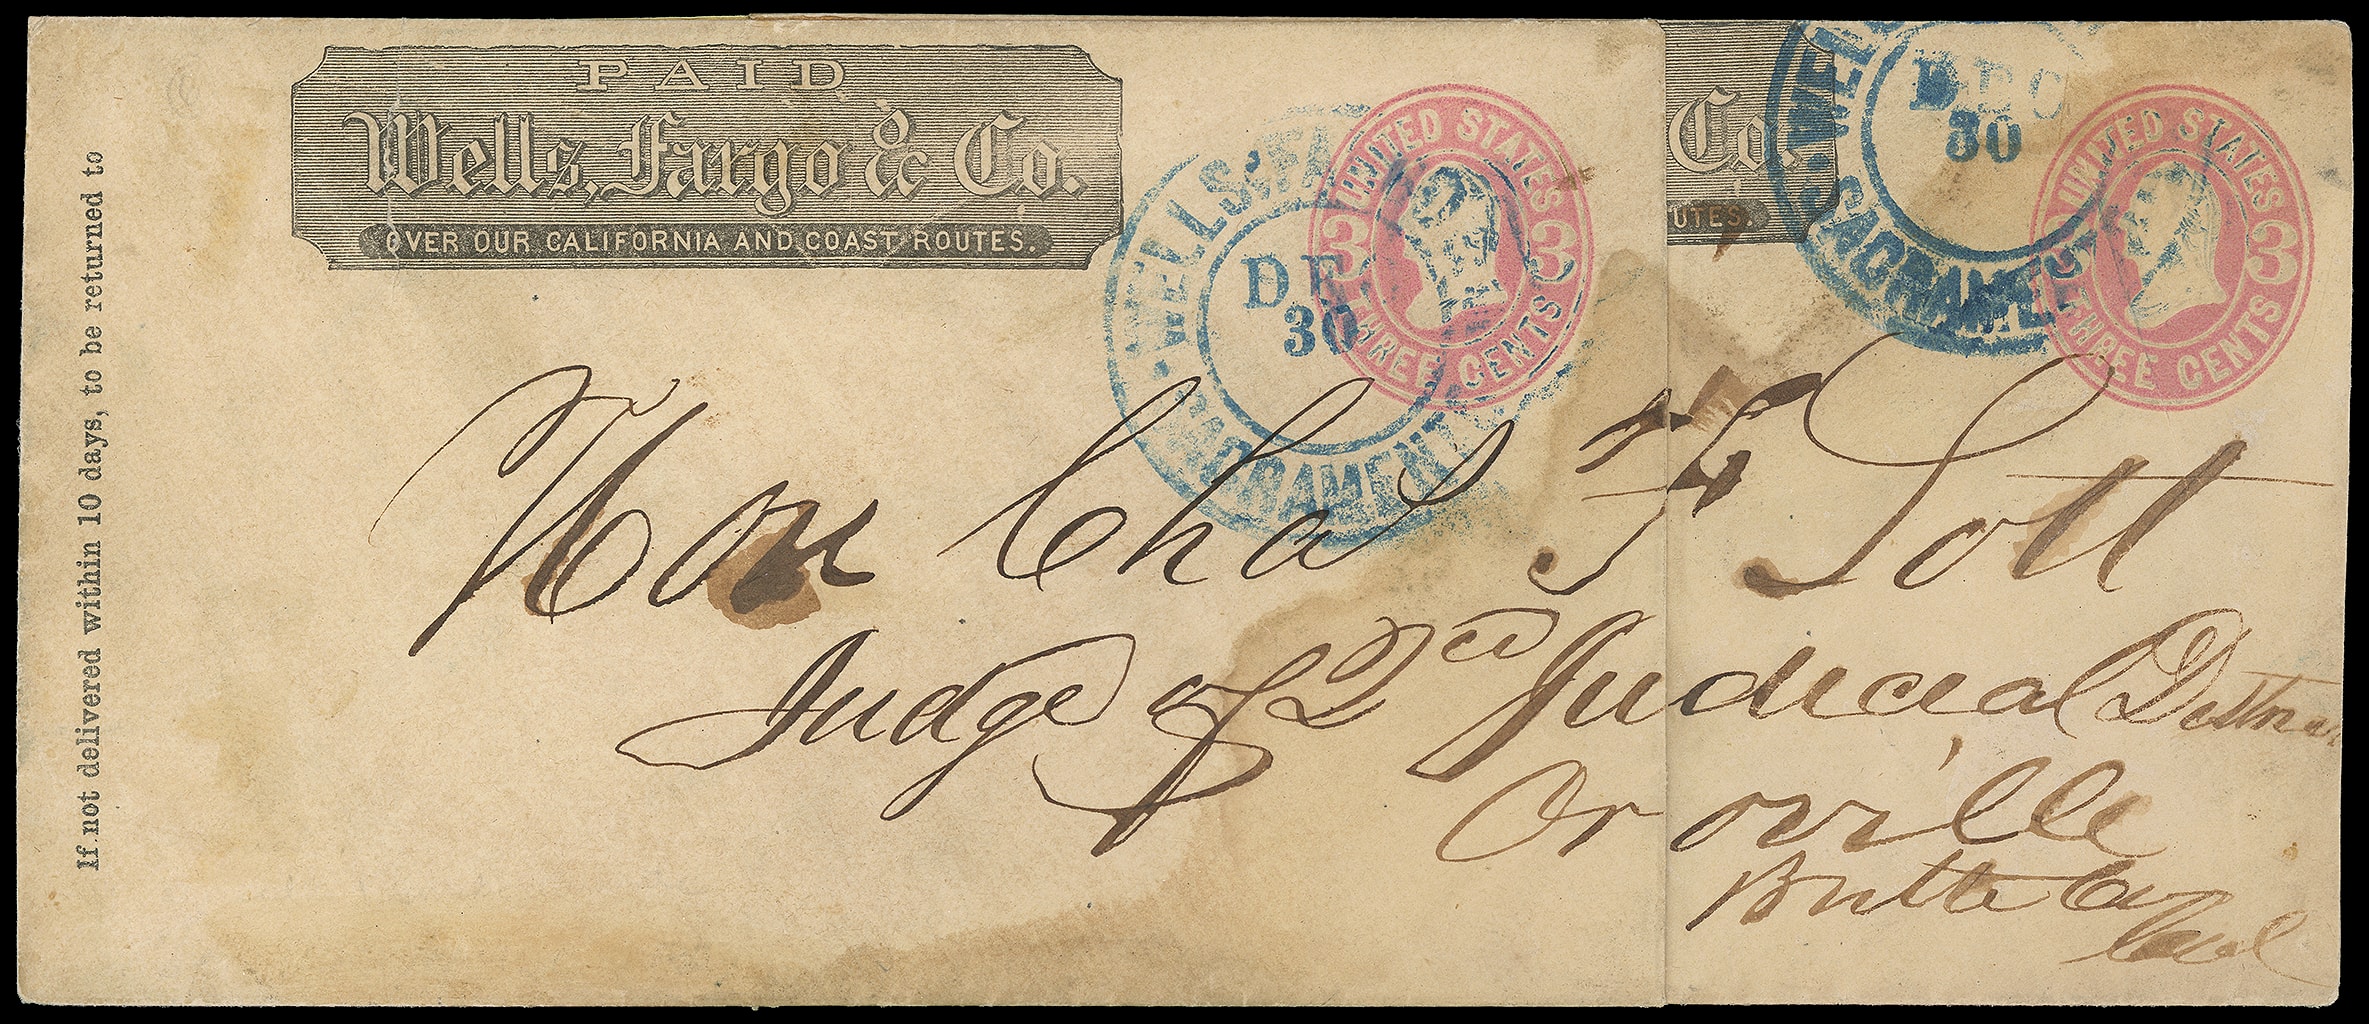 PAID
Wells, Fargo & Co.
OVER OUR CALIFORNIA AND COAST ROUTES.
If not delivered within 10 days, to be returned to
WELLS, FA
DE
30
SACRAMENTO
UNITED STATES
3 3
THREE CENTS
Co.
UTES.
WELLS
DEC
30
SACRAMENTO
UNITED STATES
3 3
THREE CENTS
Hon Chas F Lott
Judge of 2ed Judicial District
Oroville
Butte Co
Cal